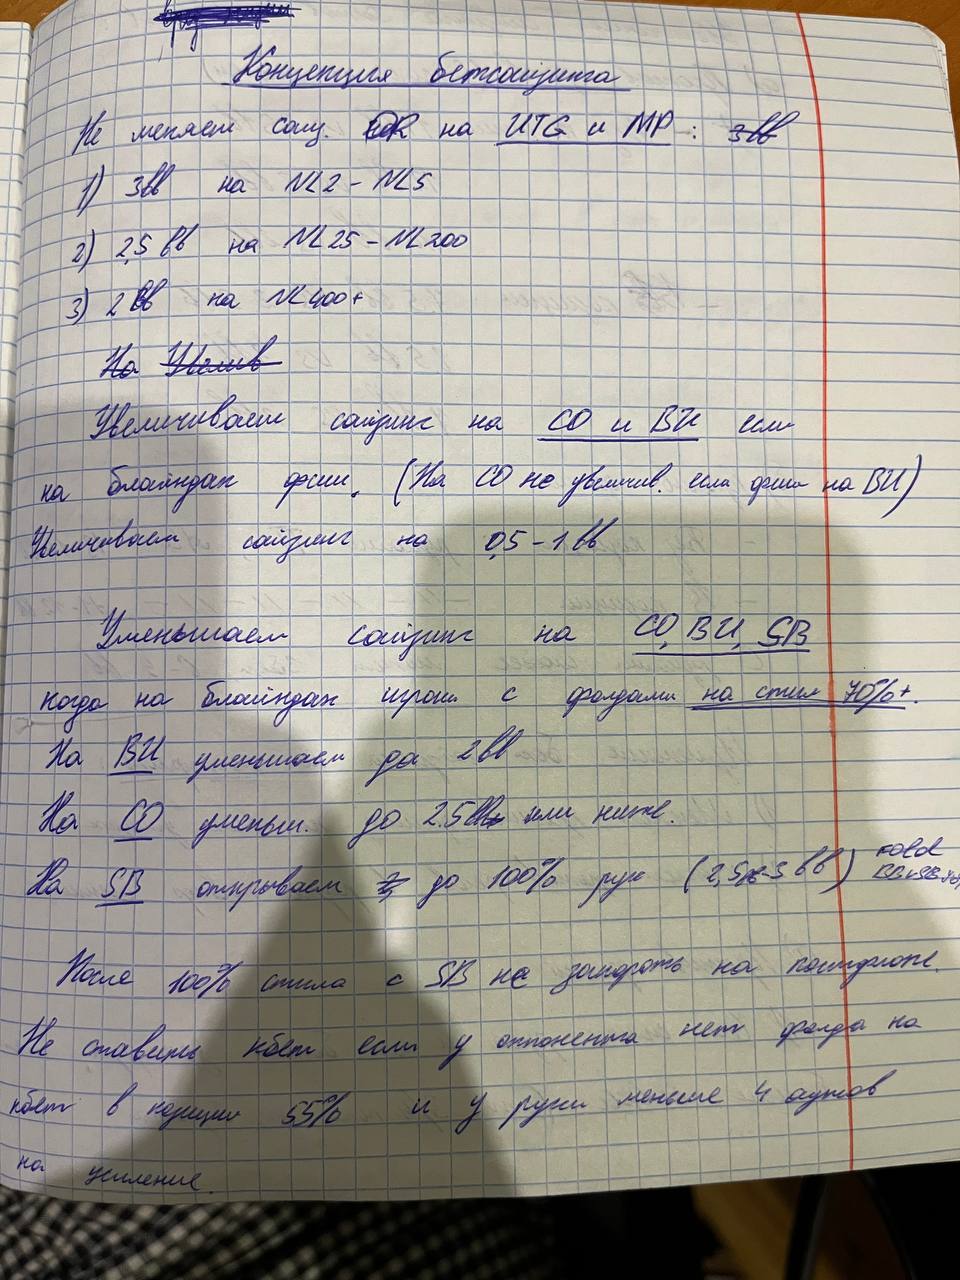 Концепция бетсайзинга
Не меняем сайз. на UTG и MP : 3bb
1) 3bb на NL2 - NL5
2) 2,5 bb на NL25 - NL200
3) 2 bb на NL400+
На Увелив
Увеличиваем сайзинг на CO и BU если
на блайндах фиш. (На CO не увеличив. если фиш на BU)
Увеличиваем сайзинг на 0,5 - 1 bb
Уменьшаем сайзинг на CO, BU, SB
когда на блайндах игроки с фолдами на стил 70%+.
На BU уменьшаем до 2bb
На CO уменьш. до 2.5bb или ниже.
На SB открываем до 100% рук (2,5-3 bb) Fold BB vs SB
После 100% стила с SB не заигрывать на постфлопе.
Не ставить кбет если у оппонента нет фолда на
кбет в позиции 55% и у руки меньше 4 аутов
на усиление.